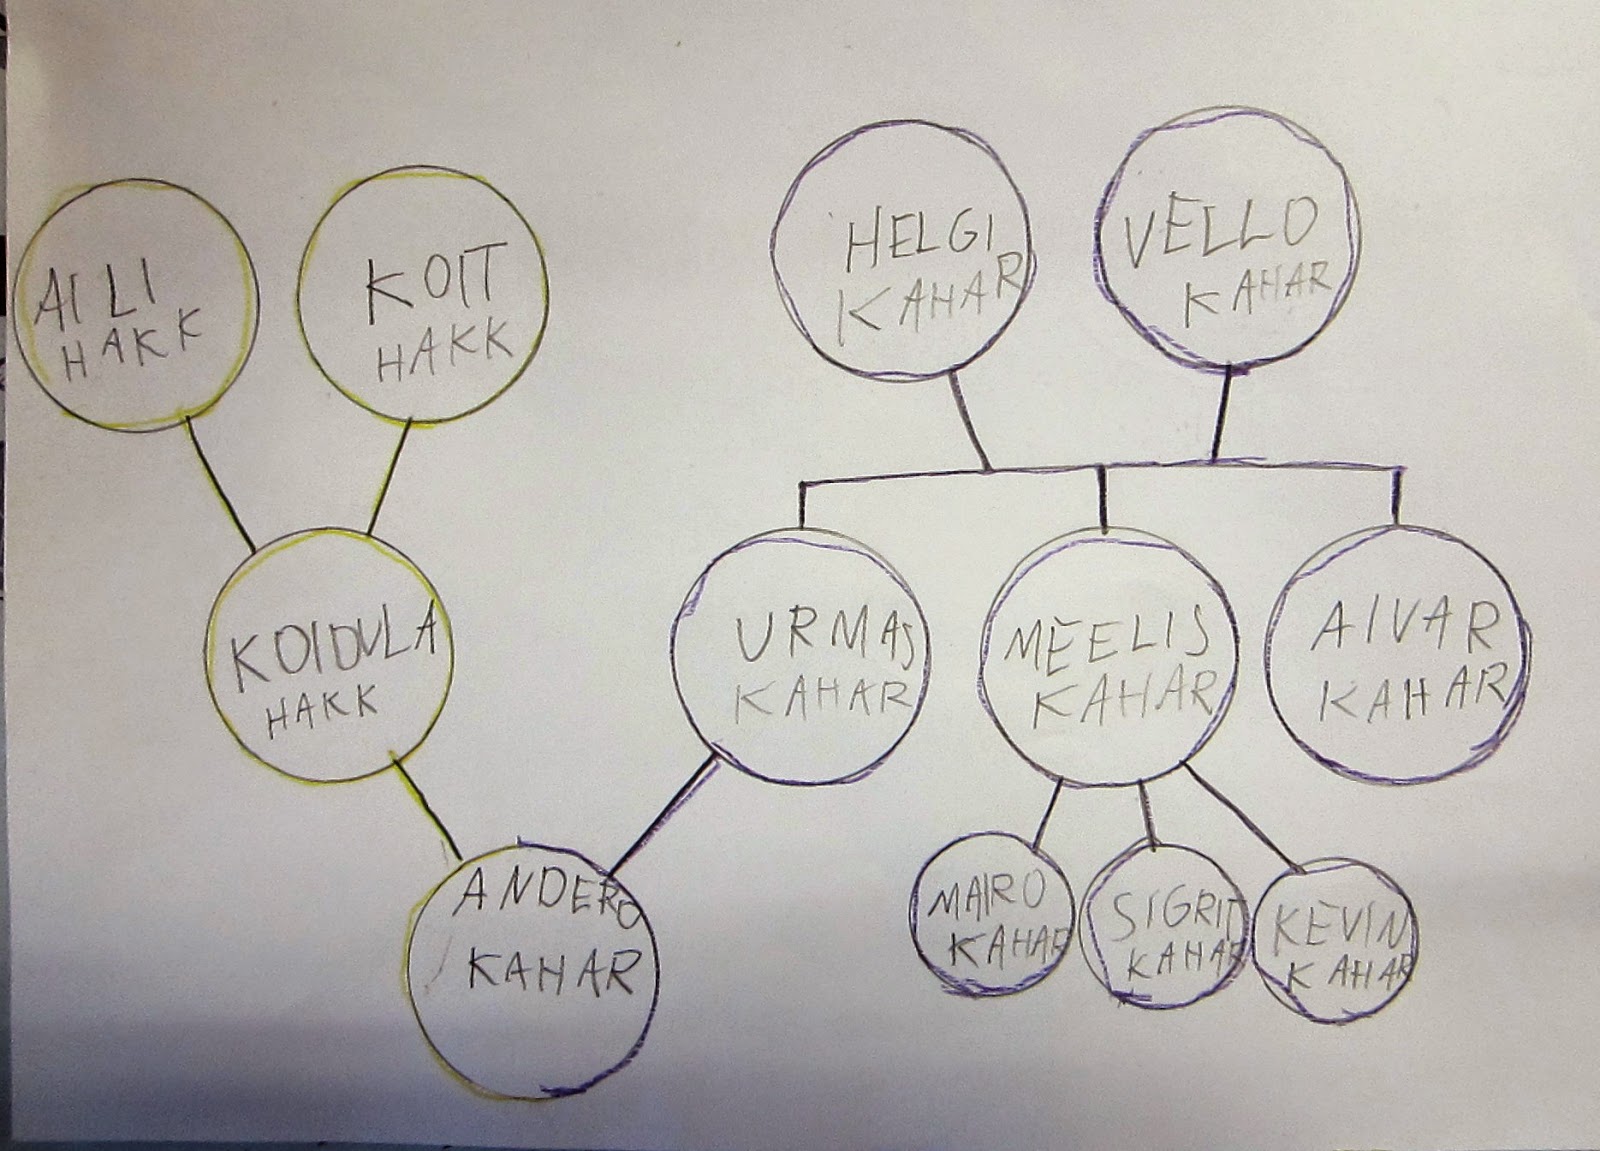 AILI
HAKK
KOIT
HAKK
HELGI
KAHAR
VELLO
KAHAR
KOIDULA
HAKK
URMAS
KAHAR
MEELIS
KAHAR
AIVAR
KAHAR
ANDERO
KAHAR
MAIRO
KAHAR
SIGRIT
KAHAR
KEVIN
KAHAR